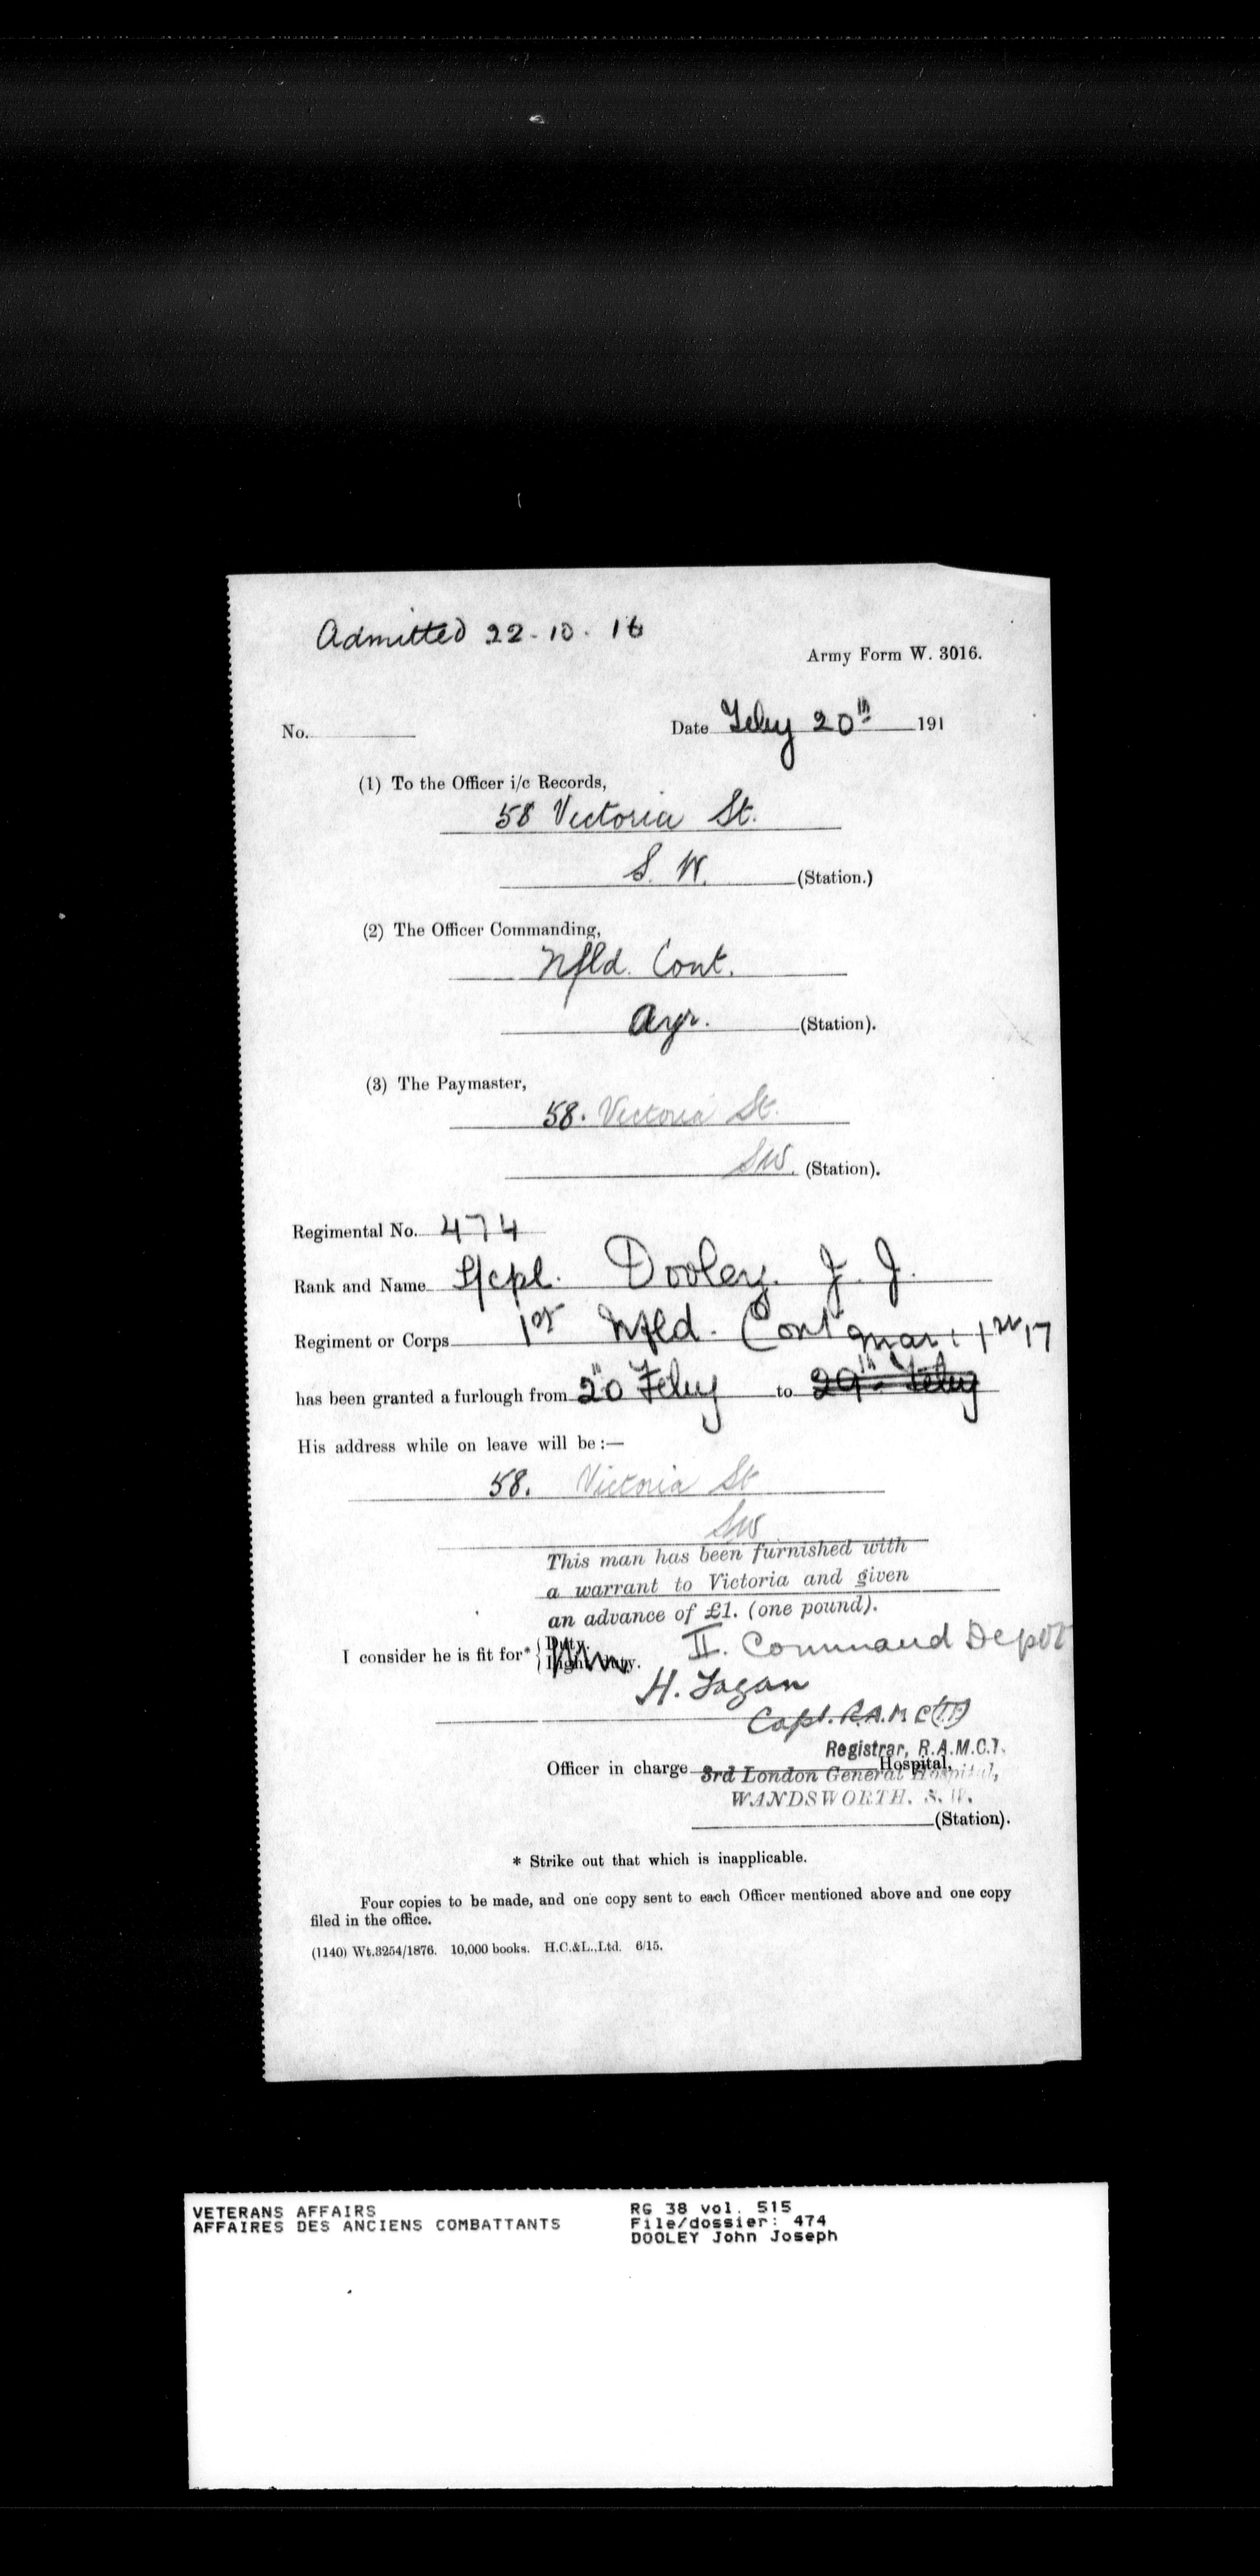 Admitted 22-10-16
Army Form W. 3016.
No. Date Feby 20th 191
(1) To the Officer i/c Records,
58 Victoria St.
S. W. (Station.)
(2) The Officer Commanding,
Nfld. Cont.
Ayr. (Station).
(3) The Paymaster,
58. Victoria St.
SW. (Station).
Regimental No. 474
Rank and Name L/cpl. Dooley. J. J.
Regiment or Corps 1st Nfld. Cont Mar: 1st 17
has been granted a furlough from 20th Feby to 29th Feby
His address while on leave will be:—
58. Victoria St
SW
This man has been furnished with
a warrant to Victoria and given
an advance of £1. (one pound).
I consider he is fit for* { Duty. Light duty. II. Command Depot
H. Fagan
Capt. R.A.M.C (T.F)
Registrar, R.A.M.C.T.
Officer in charge 3rd London General Hospital, Hospital,
WANDSWORTH, S.W.
(Station).
* Strike out that which is inapplicable.
Four copies to be made, and one copy sent to each Officer mentioned above and one copy
filed in the office.
(1140) Wt.3254/1876. 10,000 books. H.C.&L.,Ltd. 6/15.
VETERANS AFFAIRS RG 38 vol. 515
AFFAIRES DES ANCIENS COMBATTANTS File/dossier: 474
DOOLEY John Joseph